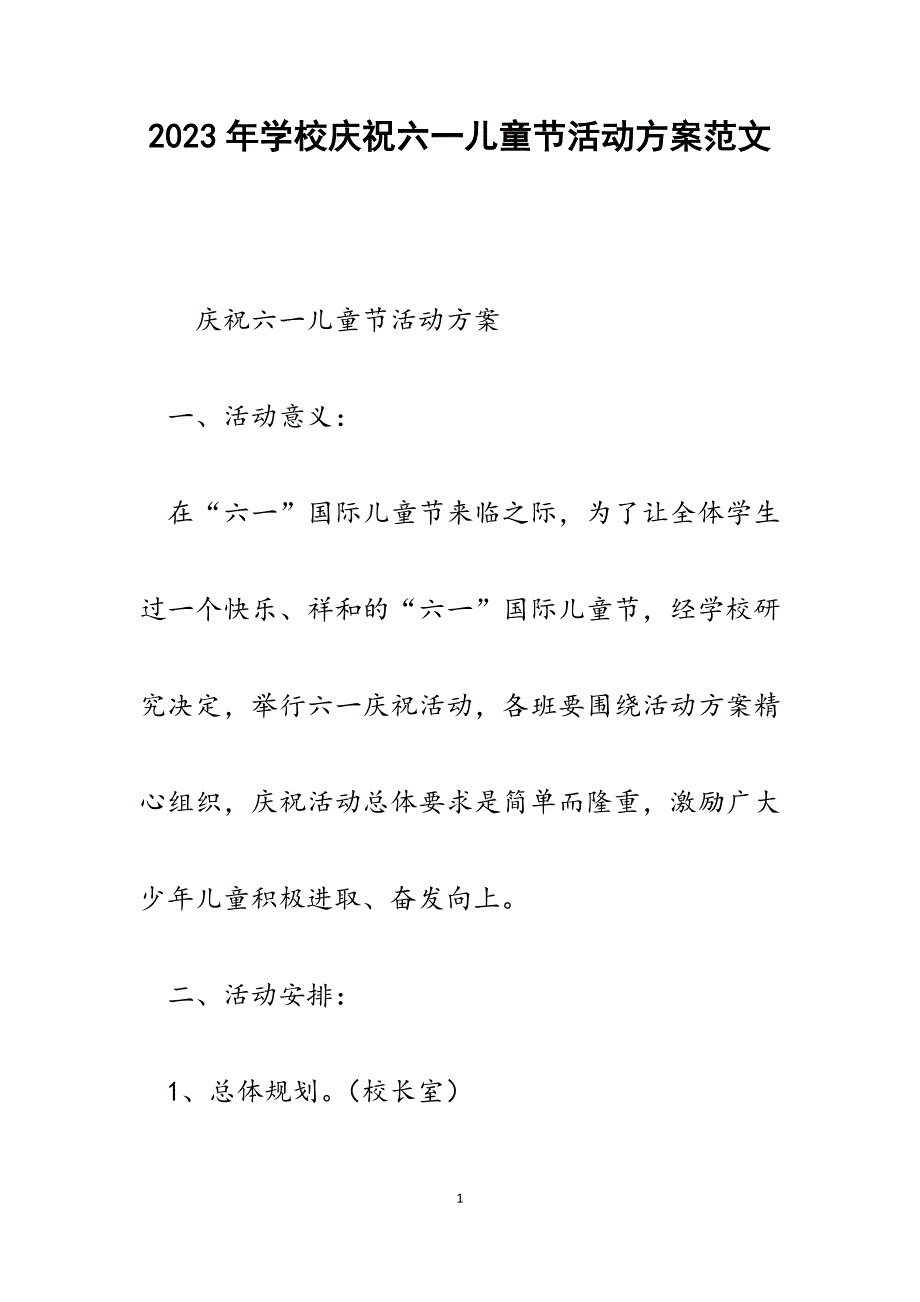 2023年学校庆祝六一儿童节活动方案范文
庆祝六一儿童节活动方案
一、活动意义：
在“六一”国际儿童节来临之际，为了让全体学生
过一个快乐、祥和的“六一”国际儿童节，经学校研
究决定，举行六一庆祝活动，各班要围绕活动方案精
心组织，庆祝活动总体要求是简单而隆重，激励广大
少年儿童积极进取、奋发向上。
二、活动安排：
1、总体规划。（校长室）
1